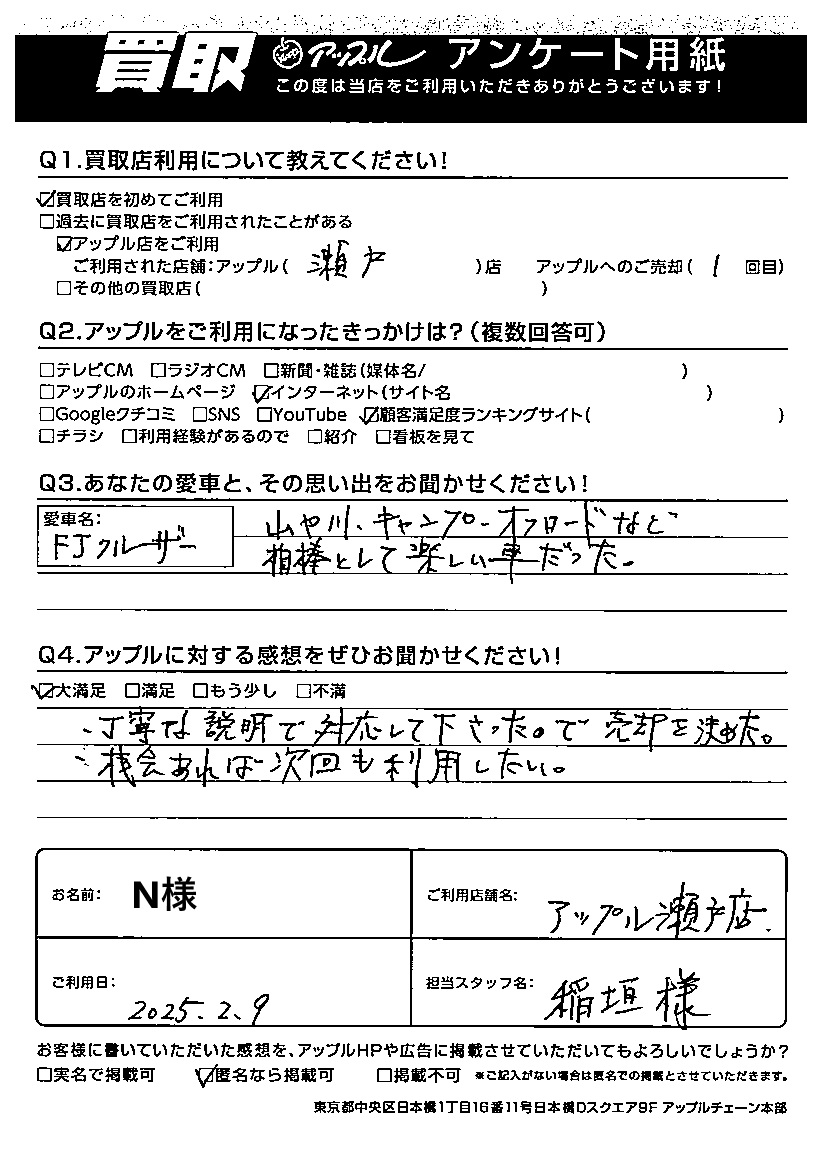 買取 アップル アンケート用紙
この度は当店をご利用いただきありがとうございます!
Q1.買取店利用について教えてください!
☑買取店を初めてご利用
□過去に買取店をご利用されたことがある
☑アップル店をご利用
ご利用された店舗:アップル( 瀬戸 )店 アップルへのご売却( 1 回目)
□その他の買取店( )
Q2.アップルをご利用になったきっかけは?(複数回答可)
□テレビCM □ラジオCM □新聞・雑誌(媒体名/ )
□アップルのホームページ ☑インターネット(サイト名 )
□Googleクチコミ □SNS □YouTube ☑顧客満足度ランキングサイト( )
□チラシ □利用経験があるので □紹介 □看板を見て
Q3.あなたの愛車と、その思い出をお聞かせください!
愛車名:
FJクルーザー
山や川、キャンプ、オフロードなど
相棒として楽しい車だった。
Q4.アップルに対する感想をぜひお聞かせください!
☑大満足 □満足 □もう少し □不満
・丁寧な説明で対応して下さったので売却を決めた。
・機会あれば次回も利用したい。
お名前: N様
ご利用店舗名: アップル瀬戸店
ご利用日: 2025.2.9
担当スタッフ名: 稲垣様
お客様に書いていただいた感想を、アップルHPや広告に掲載させていただいてもよろしいでしょうか?
□実名で掲載可 ☑匿名なら掲載可 □掲載不可 ※ご記入がない場合は匿名での掲載とさせていただきます。
東京都中央区日本橋1丁目16番11号日本橋Dスクエア9F アップルチェーン本部